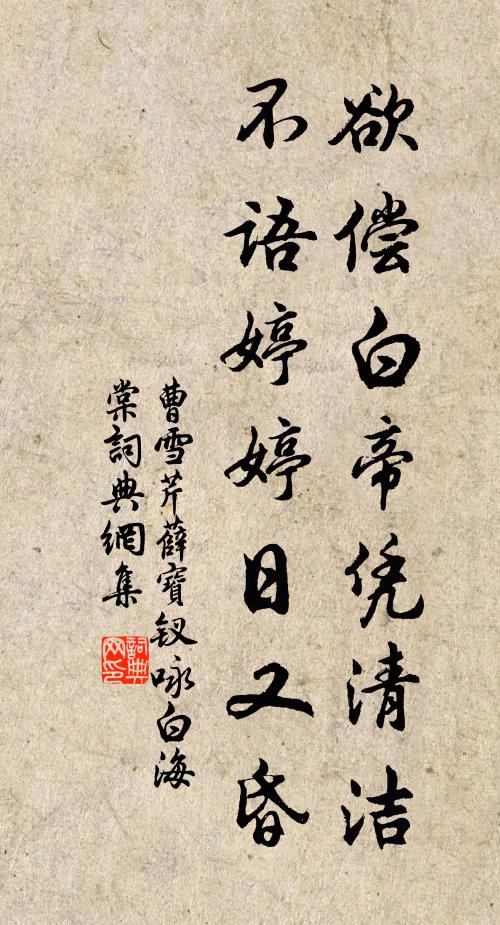 欲偿白帝凭清洁
不语婷婷日又昏
曹雪芹薛寶钗咏白海
棠詞典網集
詞典
网印